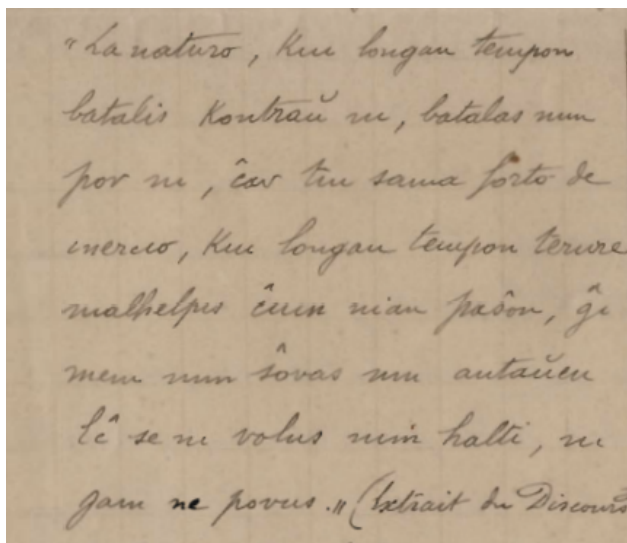 "La naturo, kiu longan tempon
batalis kontraŭ ni, batalas nun
por ni, ĉar tiu sama forto de
inercio, kiu longan tempon terure
malhelpis ĉiun nian paŝon, ĝi
mem nun ŝovas nin antaŭen
Eĉ se ni volus nun halti, ni
jam ne povus." (Extrait du Discours